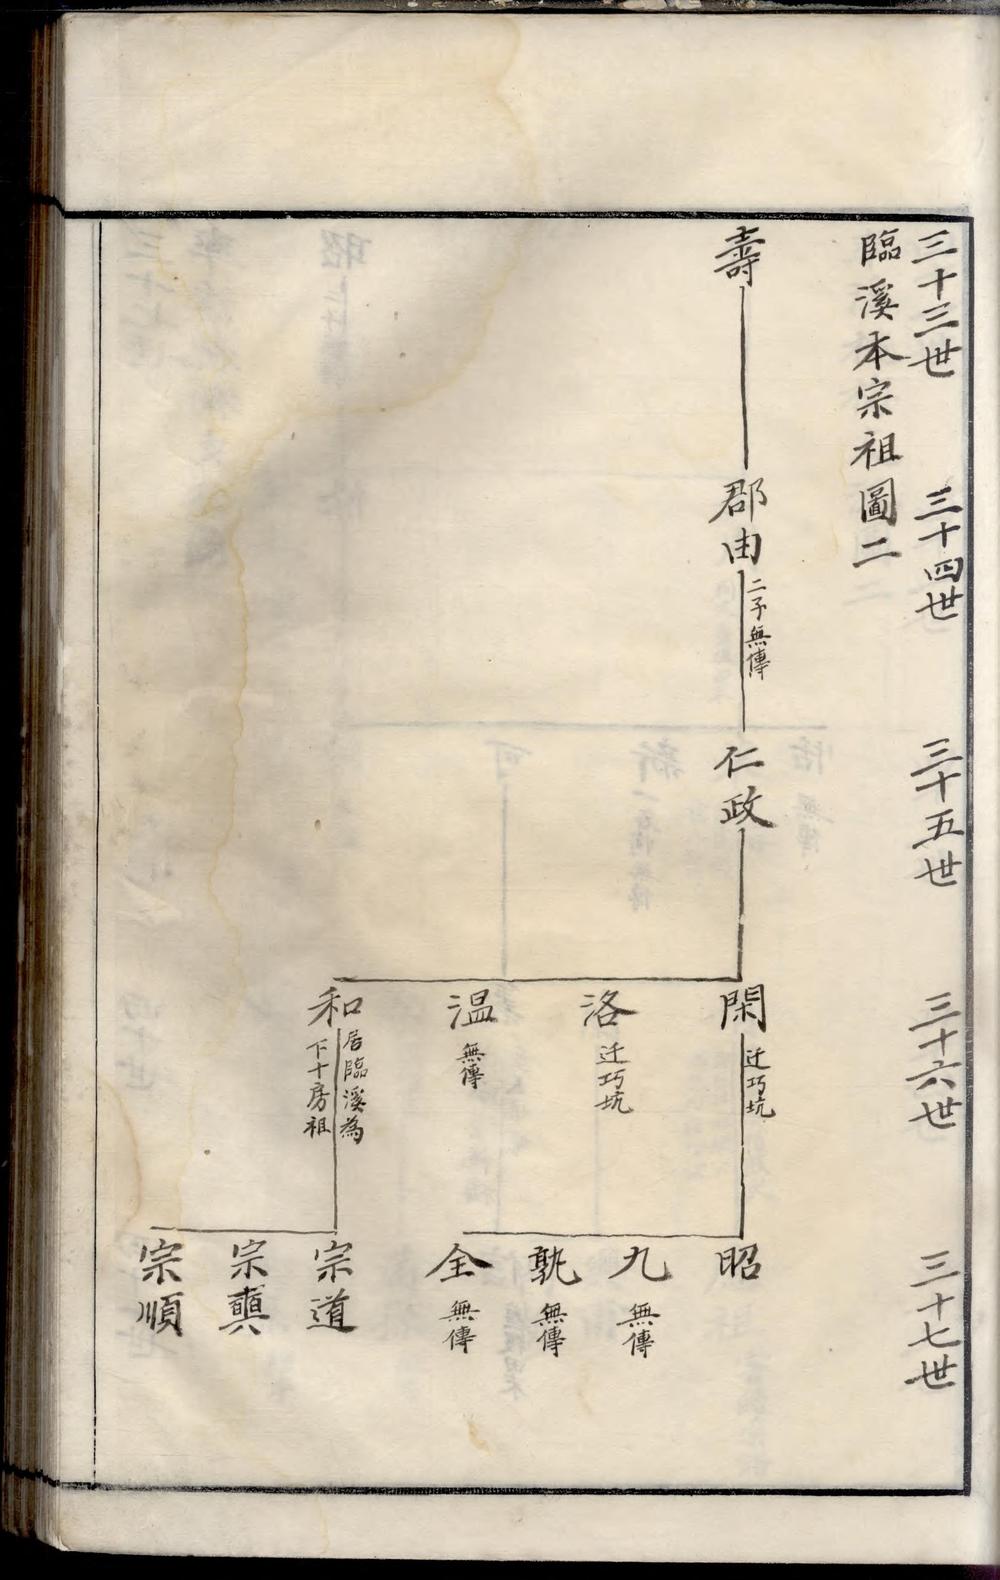 三十三世
三十四世
三十五世
三十六世
三十七世
臨溪本宗祖圖二
壽
郡由
二子無傳
仁政
閑
迁巧坑
洛
迁巧坑
温
無傳
和
居臨溪為
下十房祖
昭
九
無傳
孰
無傳
全
無傳
宗道
宗
宗順